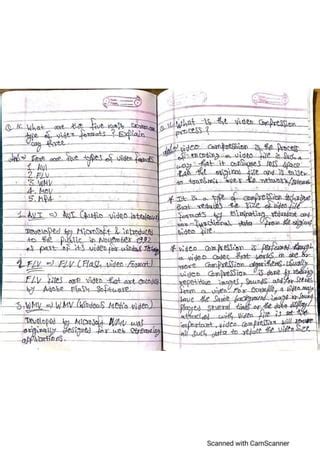 Q.1. What are the five most common
type of video formats? Explain
any three.
Ans⇒ There are five types of video formats
1. AVI
2. FLV
3. WMV
4. MOV
5. MP4
1. AVI ⇒ AVI (Audio video interleave)
Developed by Microsoft & introduced
to the public in November 1992
as part of its video for windows
2. FLV ⇒ FLV (Flash video Format)
FLV files are video that are encoded
by Adobe Flash Software
3. WMV ⇒ WMV (Windows Media video)
Developed by Microsoft WMV was
originally designed for web streaming
applications.
What is the video compression
process?
Ans⇒ video compression is the process
of encoding a video file in such a
way that it consumes less space
than the original file and is easier
to transmit over the network/Internet
* It is a type of compression technique
that reduces the size of video file
formats by eliminating redundant and
non-functional data from the original
video file
* video compression is performed through
a video codec that works on one or
more compression algorithms. Usually
video compression is done by removing
repetitive images, sounds and/or scenes
from a video. For example, a video may
have the same background, image or sound
played several times or the data displayed/
attached with video file is not that
important. video compression will remove
all such data to reduce the video size
Scanned with CamScanner